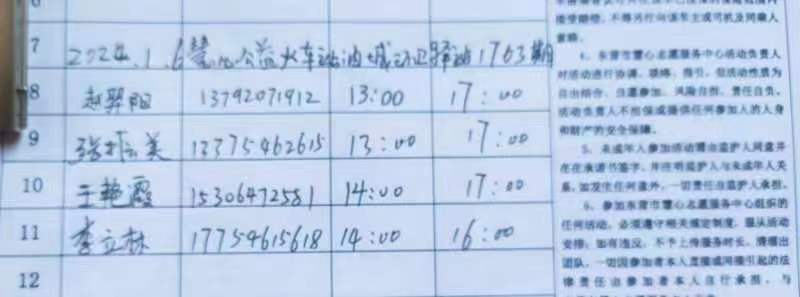 7 2024.1.6慧心公益火车站油城永卫驿站1763期
8 赵翠阳 13792071912 13:00 17:00
9 张振美 13375462615 13:00 17:00
10 王艳霞 15306472581 14:00 17:00
11 李立林 17754615618 14:00 16:00
12
接受赔偿，不得另行向该车主或司机及同乘人
索赔。
4、东营市慧心志愿服务中心活动负责人
对活动进行协调、联络、指引，但活动性质为
自由结合、自愿参加、风险自担、责任自负。
活动负责人不担保或提供任何参加人的人身
和财产的安全保障。
5、未成年人参加活动需由监护人同意并
在在承诺书签字，并注明监护人与未成年人关
系，如发生任何意外，一切责任由监护人承担。
6、参加东营市慧心志愿服务中心组织的
任何活动，必须遵守相关规定制度，服从活动
安排，如有违反，不予上传服务时长，清理出
团队，一切因参加者本人直接或间接引起的法
律责任由参加者本人自行承担，与